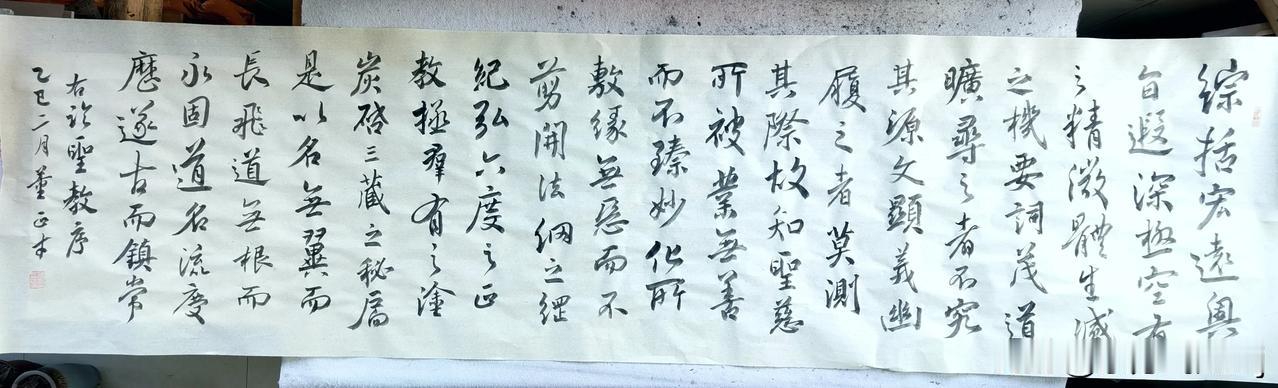 綜括宏遠奧
旨遐深極空有
之精微體生滅
之機要詞茂道
曠尋之者不究
其源文顯義幽
履之者莫測
其際故知聖慈
所被業無善
而不臻妙化所
敷緣無惡而不
剪開法網之綱
紀弘六度之正
教拯羣有之塗
炭啓三藏之秘扃
是以名無翼而
長飛道無根而
永固道名流慶
歷遂古而鎮常
右臨聖教序
乙巳二月董正